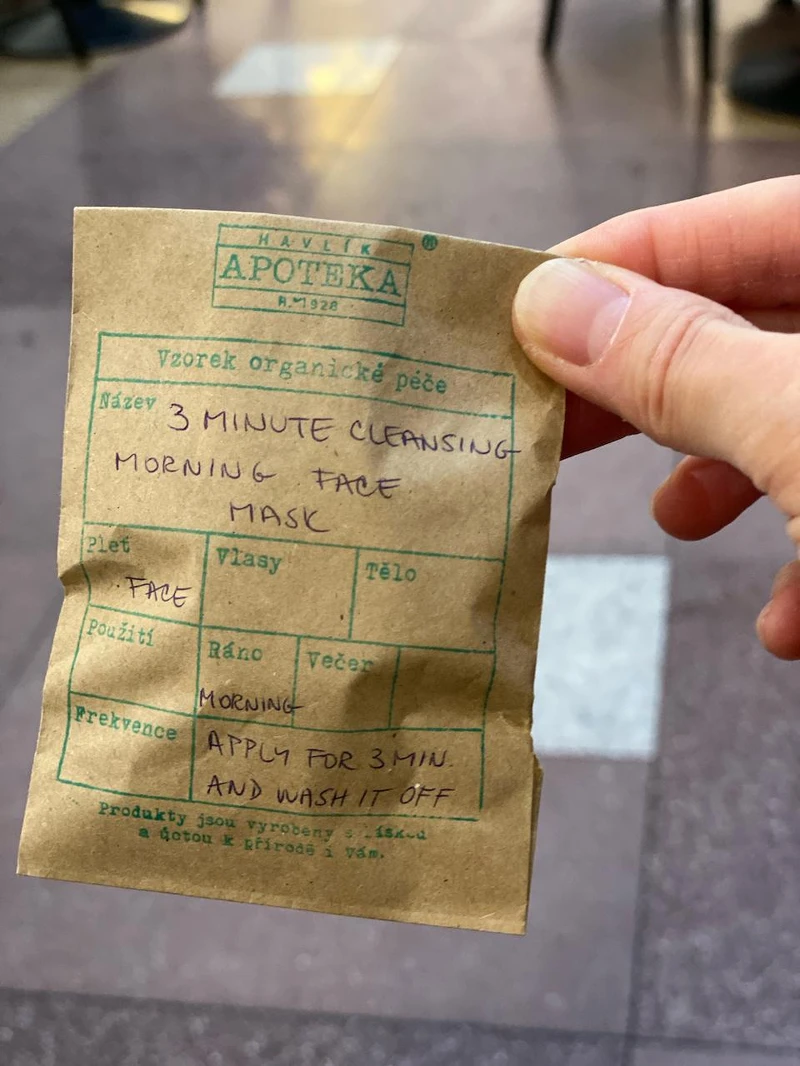 HAVLÍK ®
APOTEKA
A.° 1928
Vzorek organické péče
Název 3 MINUTE CLEANSING
MORNING FACE
MASK
Pleť Vlasy Tělo
FACE
Použití Ráno Večer
MORNING
Frekvence APPLY FOR 3 MIN.
AND WASH IT OFF
Produkty jsou vyrobeny s láskou
a úctou k přírodě i Vám.